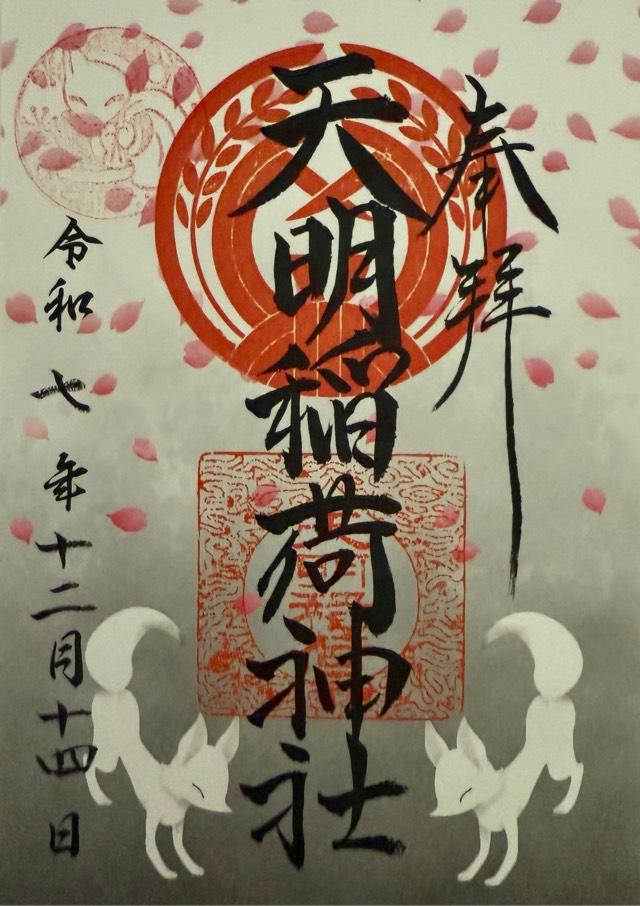 奉拝
天明稲荷神社
令和七年十二月十四日